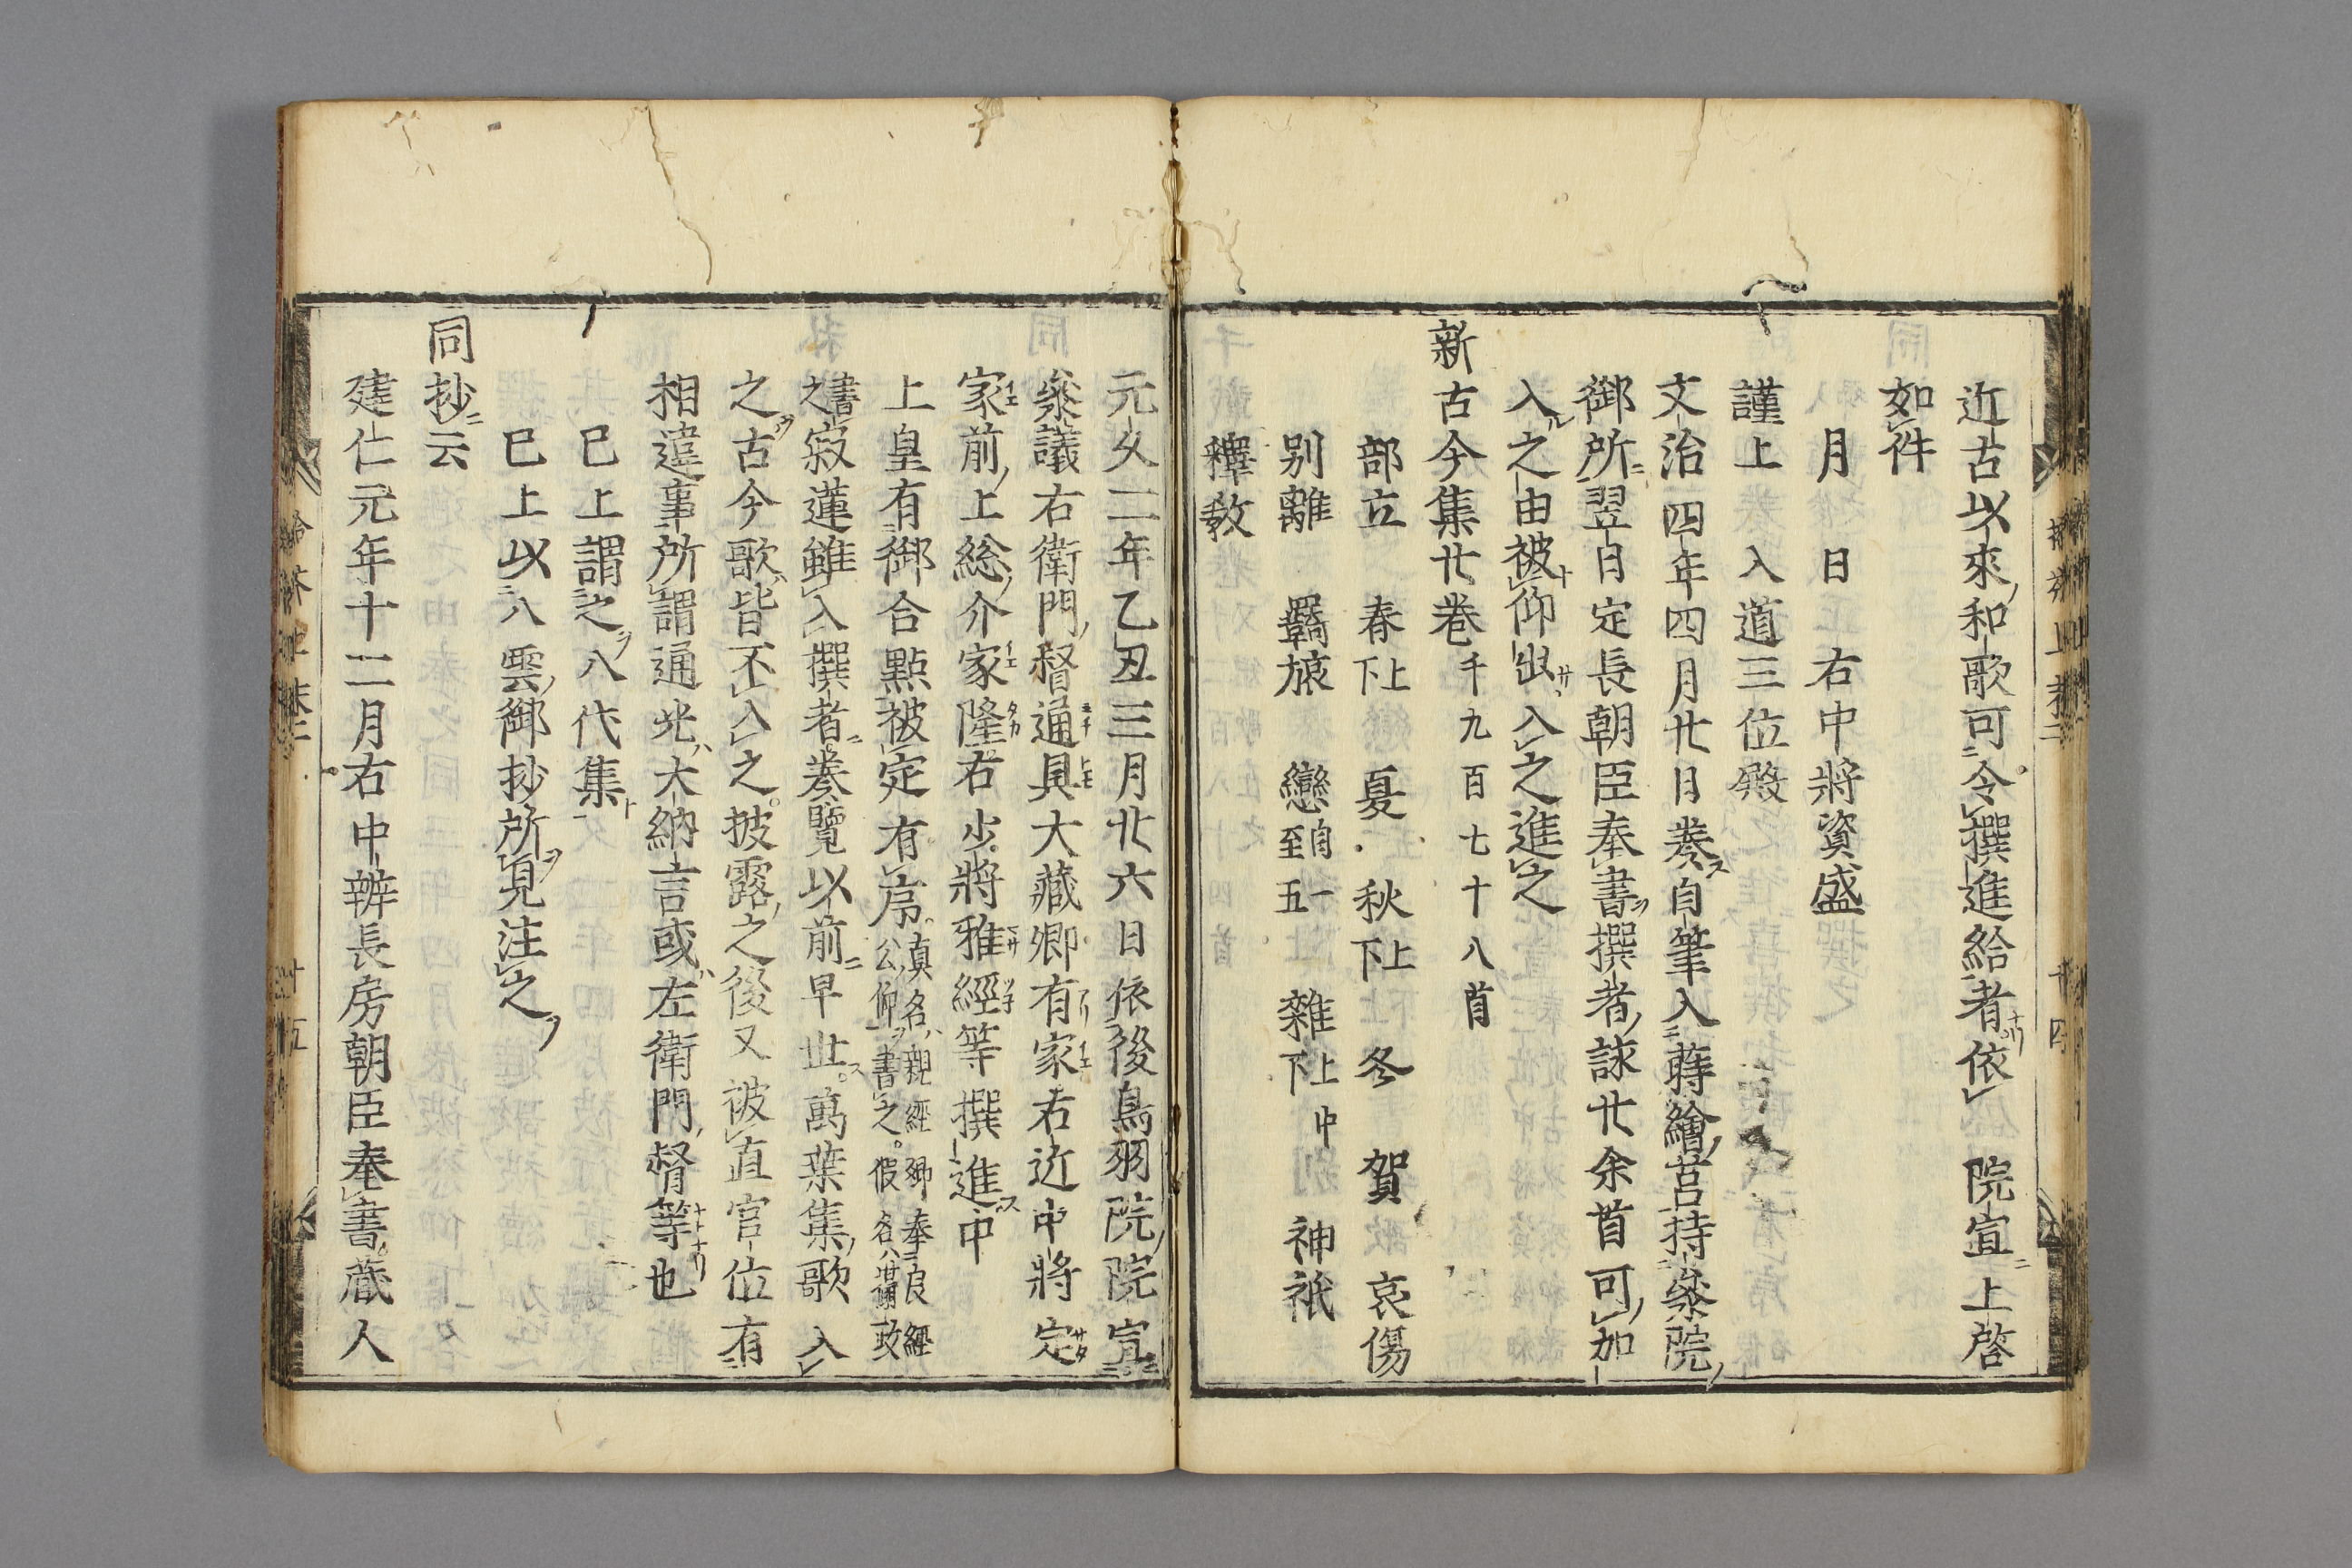 近古以來和歌可令撰進給者依 院宣上啓
如件
月 日 右中將資盛
謹上 入道三位殿
文治四年四月廿日奏自筆入蒔繪莒持參院
御所翌日定長朝臣奉書撰者詠廿余首可加
入之由被仰出入之進之
新古今集廿巻千九百七十八首
部立 春上下 夏 秋上下 冬 賀 哀傷
别離 羇旅 戀自一至五 雜上中下 神祇
釋敎
元久二年乙丑三月廿六日依後鳥羽院院宣
參議右衛門督通具大藏卿有家右近中將定
家前上総介家隆右少將雅經等撰進中
上皇有御合點被定有序真名親經卿奉良經公仰書之假名攝政
書之寂蓮雖入撰者奏覽以前早世萬葉集歌入
之古今歌皆不入之披露之後又被直官位有
相違事所謂通光大納言或左衛門督等也
已上謂之八代集
已上以八雲御抄所見注之
同抄云
建仁元年十二月右中辨長房朝臣奉書蔵人